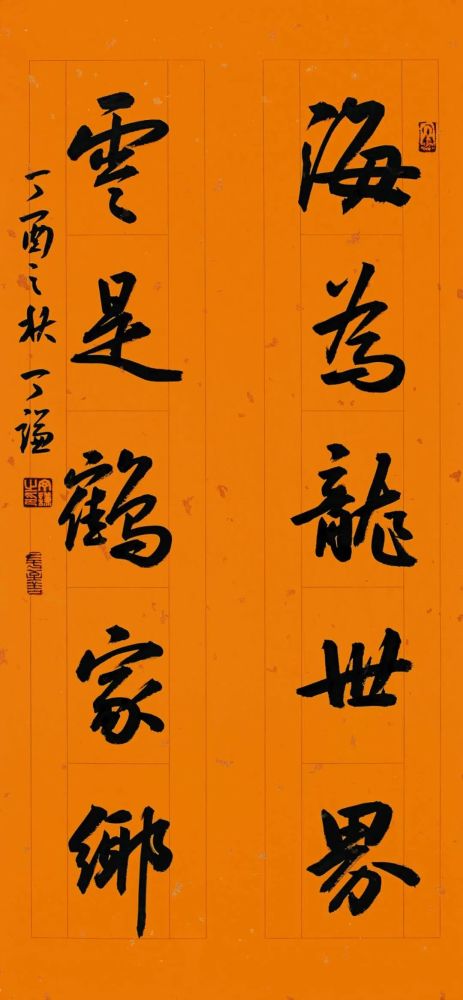 海為龍世界
雲是鶴家鄉
丁酉之秋 丁謙